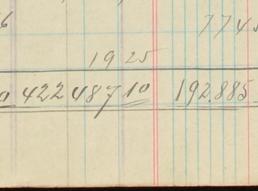 6 774
1925
422 487 10 192.885